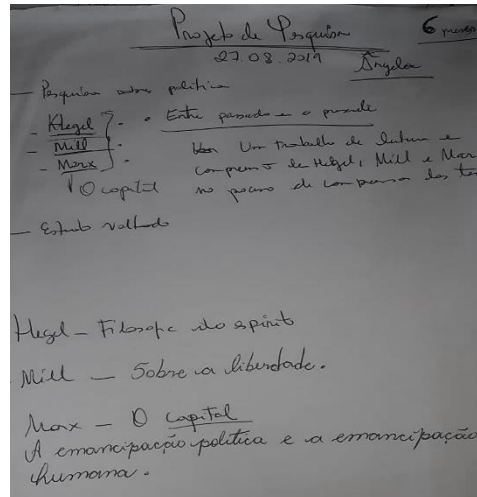 Projeto de Pesquisa
6 meses
27.08.2019
Ângela
— Pesquisar sobre política
- Hegel
- Mill
- Marx
O capital
• Entre passado e o presente
Um trabalho de leitura e
compreensão de Hegel, Mill e Mar
no processo de compreensão dos
— Estudo voltado
Hegel - Filosofia do espírito
Mill — Sobre a liberdade.
Marx — O capital
A emancipação política e a emancipação
humana.